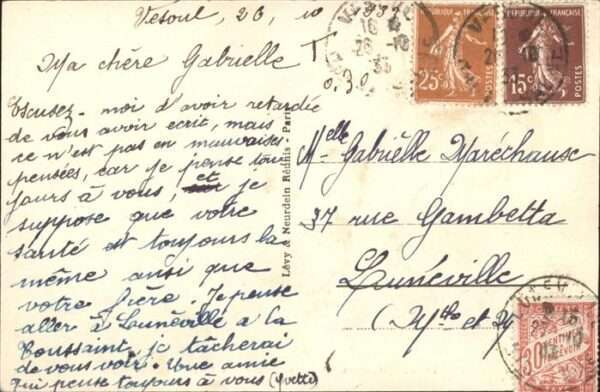 Vesoul, 26, 10 1933
Ma chère Gabrielle
T
0.30
Escusez-moi d'avoir retardée
de vous avoir ecrit, mais
ce n'est pas en mauvaises
pensées, car je pense tou
jours à vous, et je
suppose que votre
santé est toujours la
même ainsi que
votre frère. Je pense
aller à Lunéville a la
Toussaint je tâcherai
de vous voir. Une amie
qui pense toujours à vous (Yvette)
Lévy & Neurdein Réunis - Paris
REPUBLIQUE FRANÇAISE
25c POSTES
REPUBLIQUE FRANÇAISE
15c POSTES
Melle Gabrielle Maréchause
37 rue Gambetta
Lunéville
(Mthe et M
30
CENTIMES